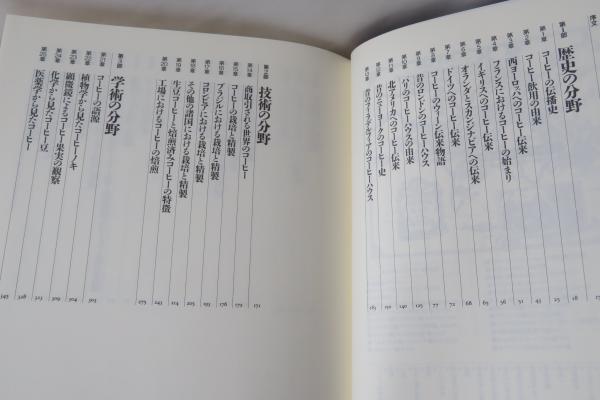 序文
第1部 歴史の分野
第1章 コーヒーの伝播史 18
第2章 コーヒー飲用の由来 25
第3章 西ヨーロッパへのコーヒー伝来 43
第4章 フランスにおけるコーヒーの始まり 51
第5章 イギリスへのコーヒー伝来 56
第6章 オランダとスカンジナビアへの伝来
第7章 ドイツへのコーヒー伝来 68
第8章 コーヒーのウィーン伝来物語 72
第9章 昔のロンドンのコーヒーハウス 77
第10章 パリのコーヒーハウスの由来
第11章 北アメリカへのコーヒー伝来 140
第12章 昔のニューヨークのコーヒー史
第13章 昔のフィラデルフィアのコーヒーハウス 163
第2部 技術の分野
第14章 商取引される世界のコーヒー
第15章 コーヒーの栽培と精製 179
第16章 ブラジルにおける栽培と精製 193
第17章 コロンビアにおける栽培と精製 205
第18章 その他の諸国における栽培と精製 214
第19章 生豆コーヒーと焙煎済みコーヒーの特徴 243
第20章 工場におけるコーヒーの焙煎 275
第3部 学術の分野
第21章 コーヒーの語源 303
第22章 植物学から見たコーヒーノキ 304
第23章 顕微鏡によるコーヒー果実の観察 309
第24章 化学から見たコーヒー豆
第25章 医薬学から見たコーヒー